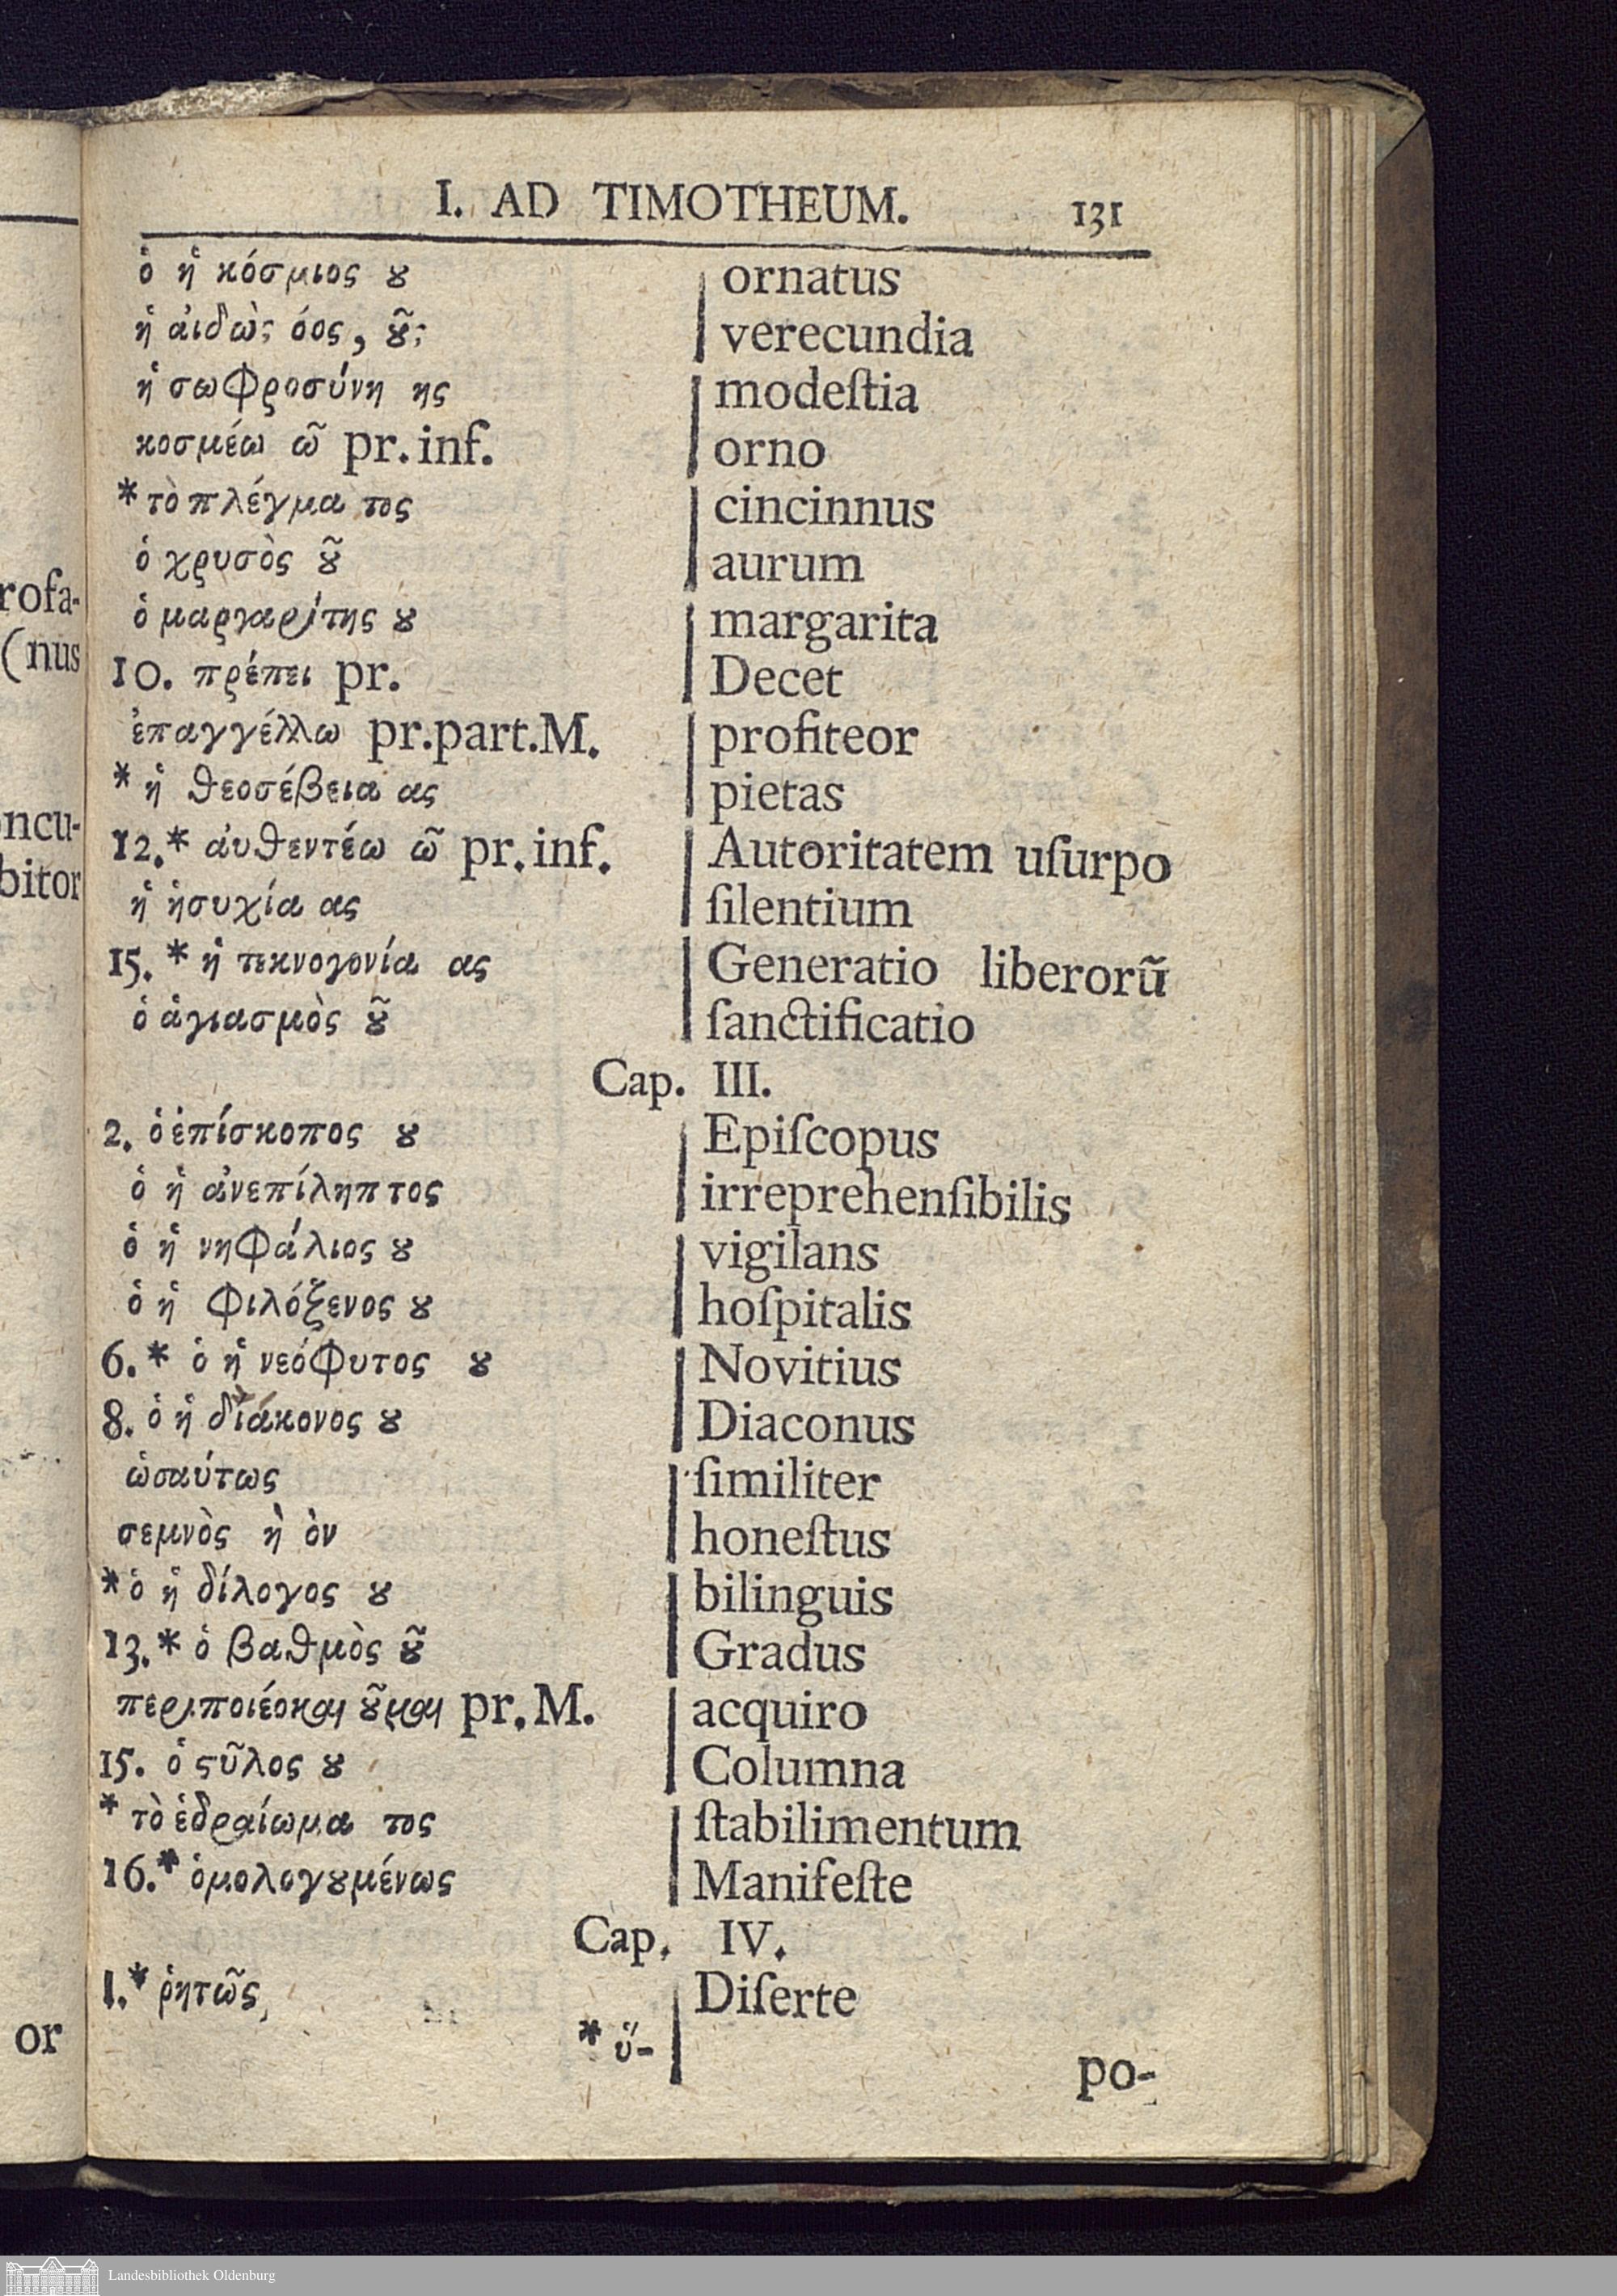 I. AD TIMOTHEUM. 131
ὁ ἡ κόσμιος ȣ ornatus
ἡ αἰδὼς όος, ȣ͂ς verecundia
ἡ σωφροσύνη ης modeſtia
κοσμέω ῶ pr. inf. orno
* τὸ πλέγμα τος cincinnus
ὁ χρυσὸς ȣ͂ aurum
ὁ μαργαρίτης ȣ margarita
10. πρέπει pr. Decet
ἐπαγγέλλω pr. part. M. profiteor
* ἡ θεοσέβεια ας pietas
12.* αὐθεντέω ῶ pr. inf. Autoritatem uſurpo
ἡ ἡσυχία ας ſilentium
15. * ἡ τεκνογονία ας Generatio liberorũ
ὁ ἁγιασμὸς ȣ͂ ſanctificatio
Cap. III.
2. ὁ ἐπίσκοπος ȣ Epiſcopus
ὁ ἡ ἀνεπίληπτος irreprehenſibilis
ὁ ἡ νηφάλιος ȣ vigilans
ὁ ἡ φιλόξενος ȣ hoſpitalis
6. * ὁ ἡ νεόφυτος ȣ Novitius
8. ὁ ἡ διάκονος ȣ Diaconus
ὡσαύτως ſimiliter
σεμνὸς ὴ ὸν honeſtus
* ὁ ἡ δίλογος ȣ bilinguis
13. * ὁ βαθμὸς ȣ͂ Gradus
περιποιέομαι ȣ͂μαι pr. M. acquiro
15. ὁ ϛῦλος ȣ Columna
* τὸ ἑδραίωμα τος ſtabilimentum
16.* ὁμολογȣμένως Manifeſte
Cap. IV.
1.* ῥητῶς, Diſerte
* ὕ- po-
rofa-
(nus
oncu-
bitor
or
Landesbibliothek Oldenburg